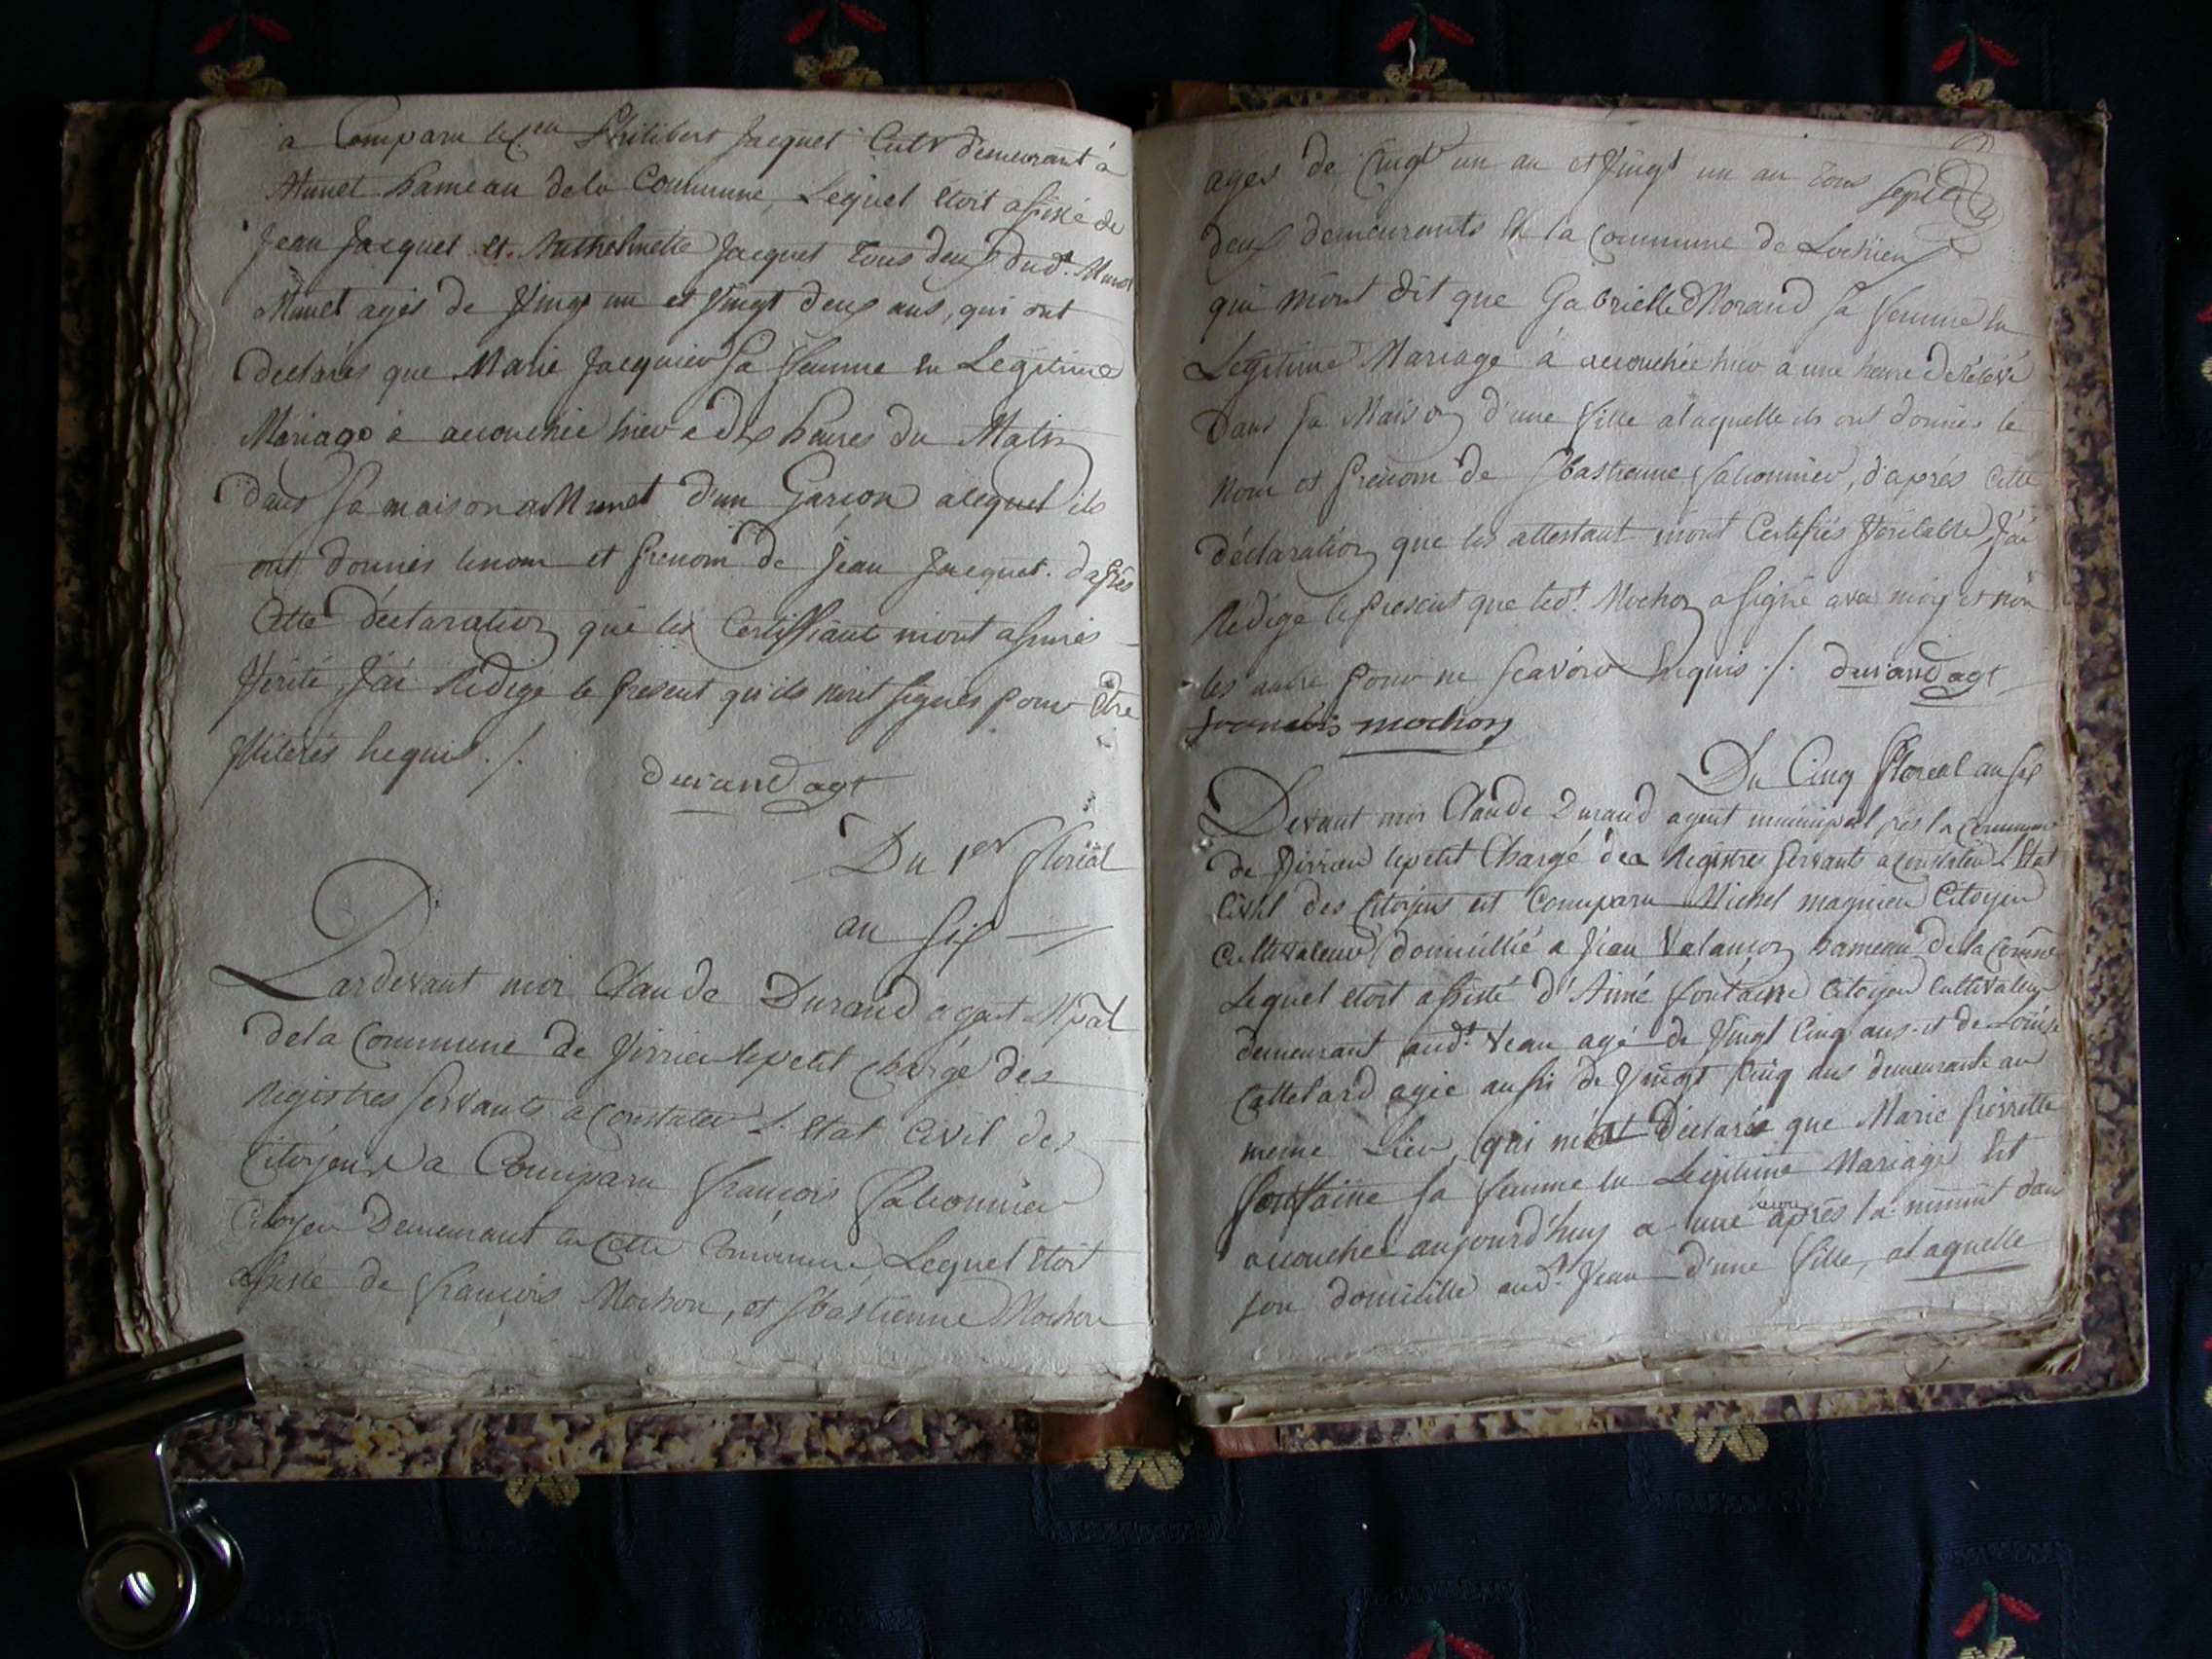 a Comparu le Cen Philibert Jacquet Cultr demeurant à
Munet hameau dela Commune, Lequel etoit assisté de
Jean Jacquet et Anthelmette Jacquet tous deux dudt. Munet
Munet agés de vingt un et vingt deux ans, qui ont
declarés que Marie Jacquier sa femme en Legitime
Mariage à accouchée hier a dix heures du Matin
dans sa maison a Munet d'un Garcon alequel ils
ont donnés lenom et prénom de Jean Jacquet. d'après
Cette déclaration que les Certiffiant mont assurés
Vérité, J'ai Rédigé le present qu'ils n'ont signés pour être
illiterés Requis ./.
durand agt
Du 1er floréal
an six
Pardevant moi Claude Durand agent Mpal
dela Commune de Virieu lepetit chargé des
Registres servants a Constater L'Etat Civil des
Citoyens a Comparu françois
Citoyen Demeurant en Cette Commune, Lequel Etoit
assisté de françois Mochon, et sbastienne Mochon
agés de vingt un an et vingt un an tous
deux demeurants en la Commune de
qui m'ont dit que Gabrielle Morand sa femme en
Légitime Mariage à accouchée hier a une heure de relevé
Dans sa Maison d'une fille alaquelle ils ont donnés le
nom et prénom de sbastienne, d'aprés cette
déclaration que les attestant m'ont Certifiés Véritable, J'ai
Rédigé le present que ledt. Mochon a signé avec moy et non
les autre pour ne scavoir Requis ./. durand agt
francois mochon
Du Cinq floreal an six
Devant moi Claude Durand agent municipal de la Commune
de Virieu lepetit Chargé des Registres servants a constater L'Etat
Civil des Citoyens est Comparu Michel magnieu Citoyen
Cultivateur domicillié a Veau Valancon hameau de la Comûne
Lequel etoit assisté d'Aimé fontaine Citoyen Cultivateur
demeurant audt. Veau agé de vingt Cinq ans et de Loüise
Cattelard agée aussi de vingt Cinq ans demeurante au
meme Lieu, qui m'ont Déclarés que Marie pierrette
fontaine sa femme en Legitime Mariage Est
accouchée aujourd'huy a une heure après la minuit dans
son domicille audt. Veau d'une fille, alaquelle